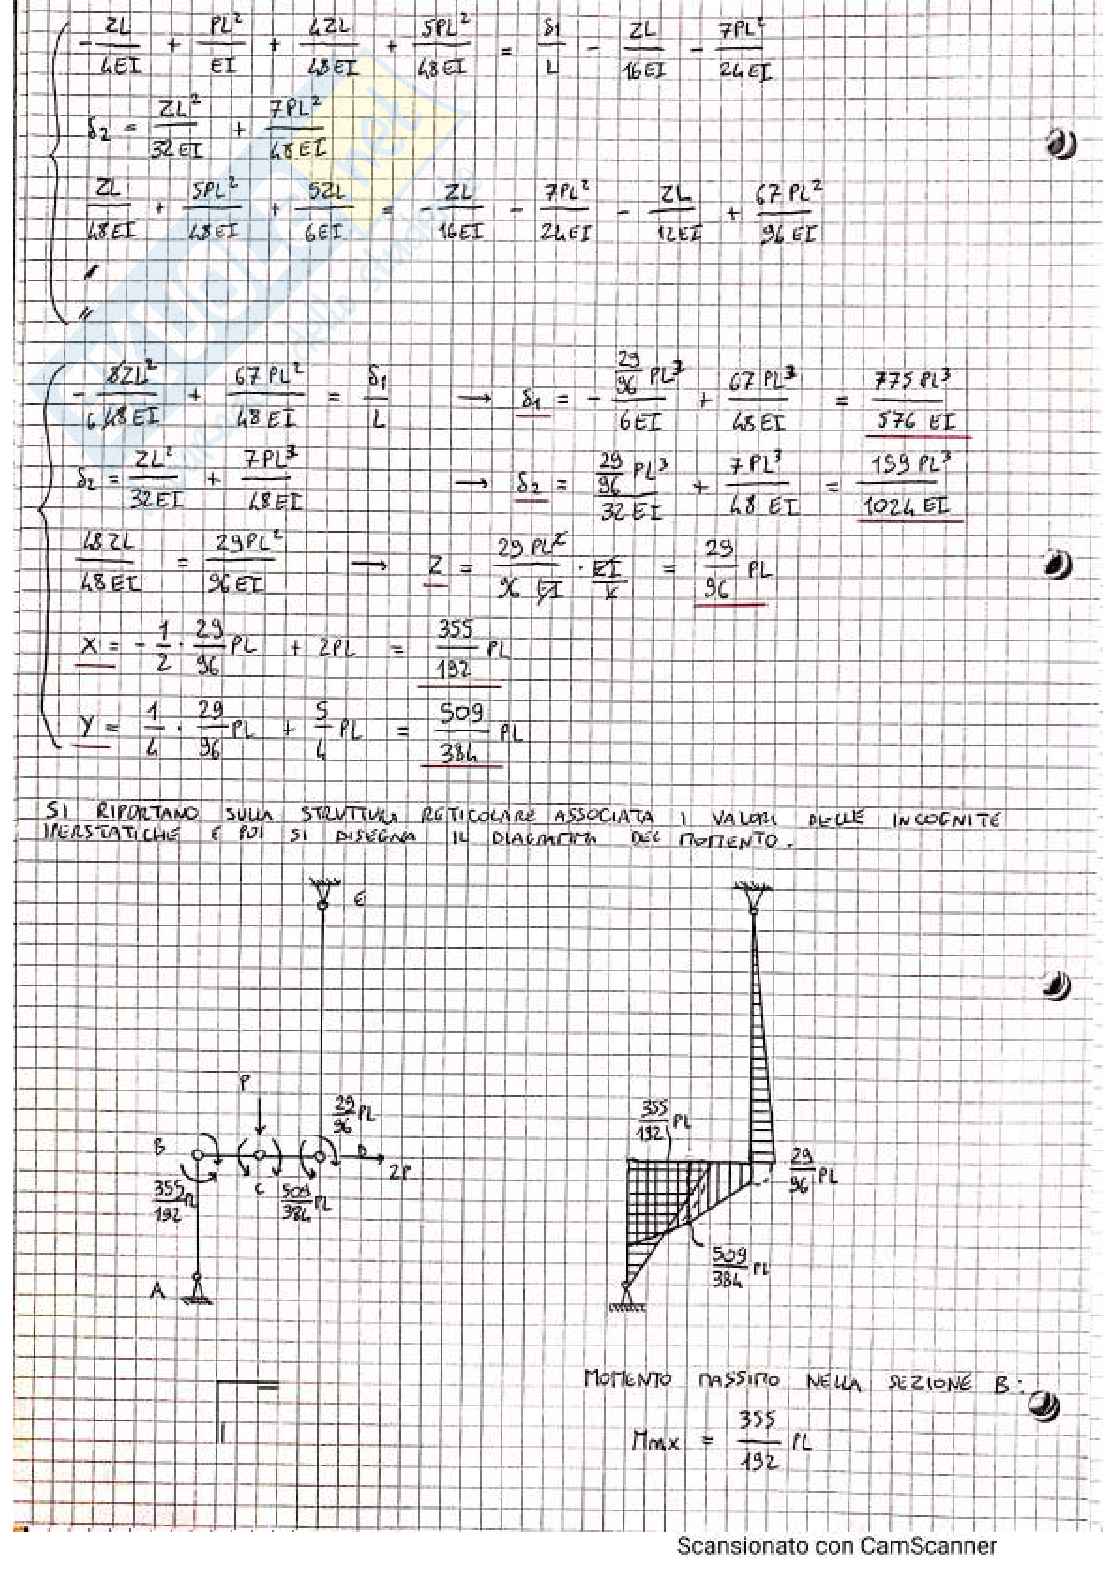 - ZL/4EI + PL²/EI + 4ZL/48EI + 5PL²/48EI = δ1/L - ZL/16EI - 7PL²/24EI
δ2 = ZL²/32EI + 7PL²/48EI
ZL/48EI + 5PL²/48EI + 5ZL/6EI = - ZL/16EI - 7PL²/24EI - ZL/12EI + 67PL²/96EI
"
"
- 8ZL²/6 48EI + 67PL²/48EI = δ1/L → δ1 = - 29/96 PL³/6EI + 67PL³/48EI = 775PL³/576 EI
δ2 = ZL²/32EI + 7PL³/48EI → δ2 = 29/96 PL³/32EI + 7PL³/48EI = 159PL³/1024 EI
48ZL/48EI = 29PL²/96EI → Z = 29PL²/96 EI · EI/L = 29/96 PL
X = - 1/2 · 29/96 PL + 2PL = 355/192 PL
Y = 1/4 · 29/96 PL + 5/4 PL = 509/384 PL
SI RIPORTANO SULLA STRUTTURA RETICOLARE ASSOCIATA I VALORI DELLE INCOGNITE
IPERSTATICHE E POI SI DISEGNA IL DIAGRAMMA DEL MOMENTO.
E
P
29/96 PL
355/192 PL
B
D
2P
29/96 PL
355/192 PL
C
509/384 PL
509/384 PL
A
MOMENTO MASSIMO NELLA SEZIONE B:
Mmax = 355/192 PL
Scansionato con CamScanner